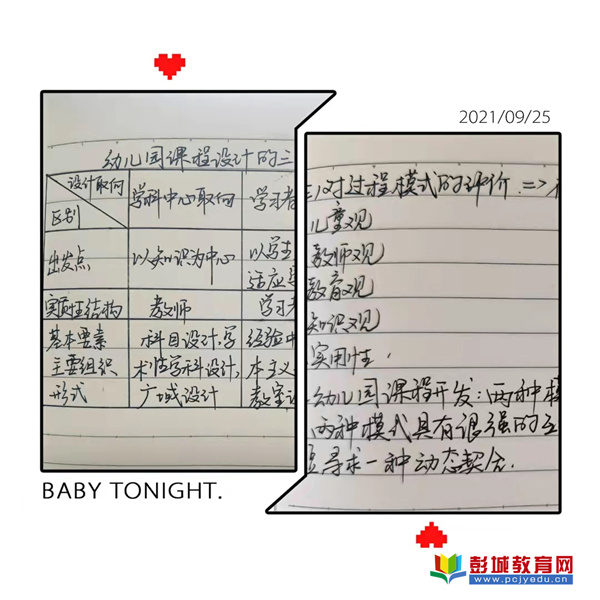 2021/09/25
幼儿园课程设计的三
设计取向
区别
学科中心取向
学习者
出发点
以知识为中心
以学生
适应
教师
学习者
基本要素
主要组织
形式
科目设计,学
术性学科设计,
广域设计
经验中
本主义
教室
对过程模式的评价 =>
儿童观
教师观
教育观
知识观
实用性.
幼儿园课程开发:两种模
两种模式具有很强的互
寻求一种动态契合.
BABY TONIGHT.
彭城教育网
www.pcjyedu.cn